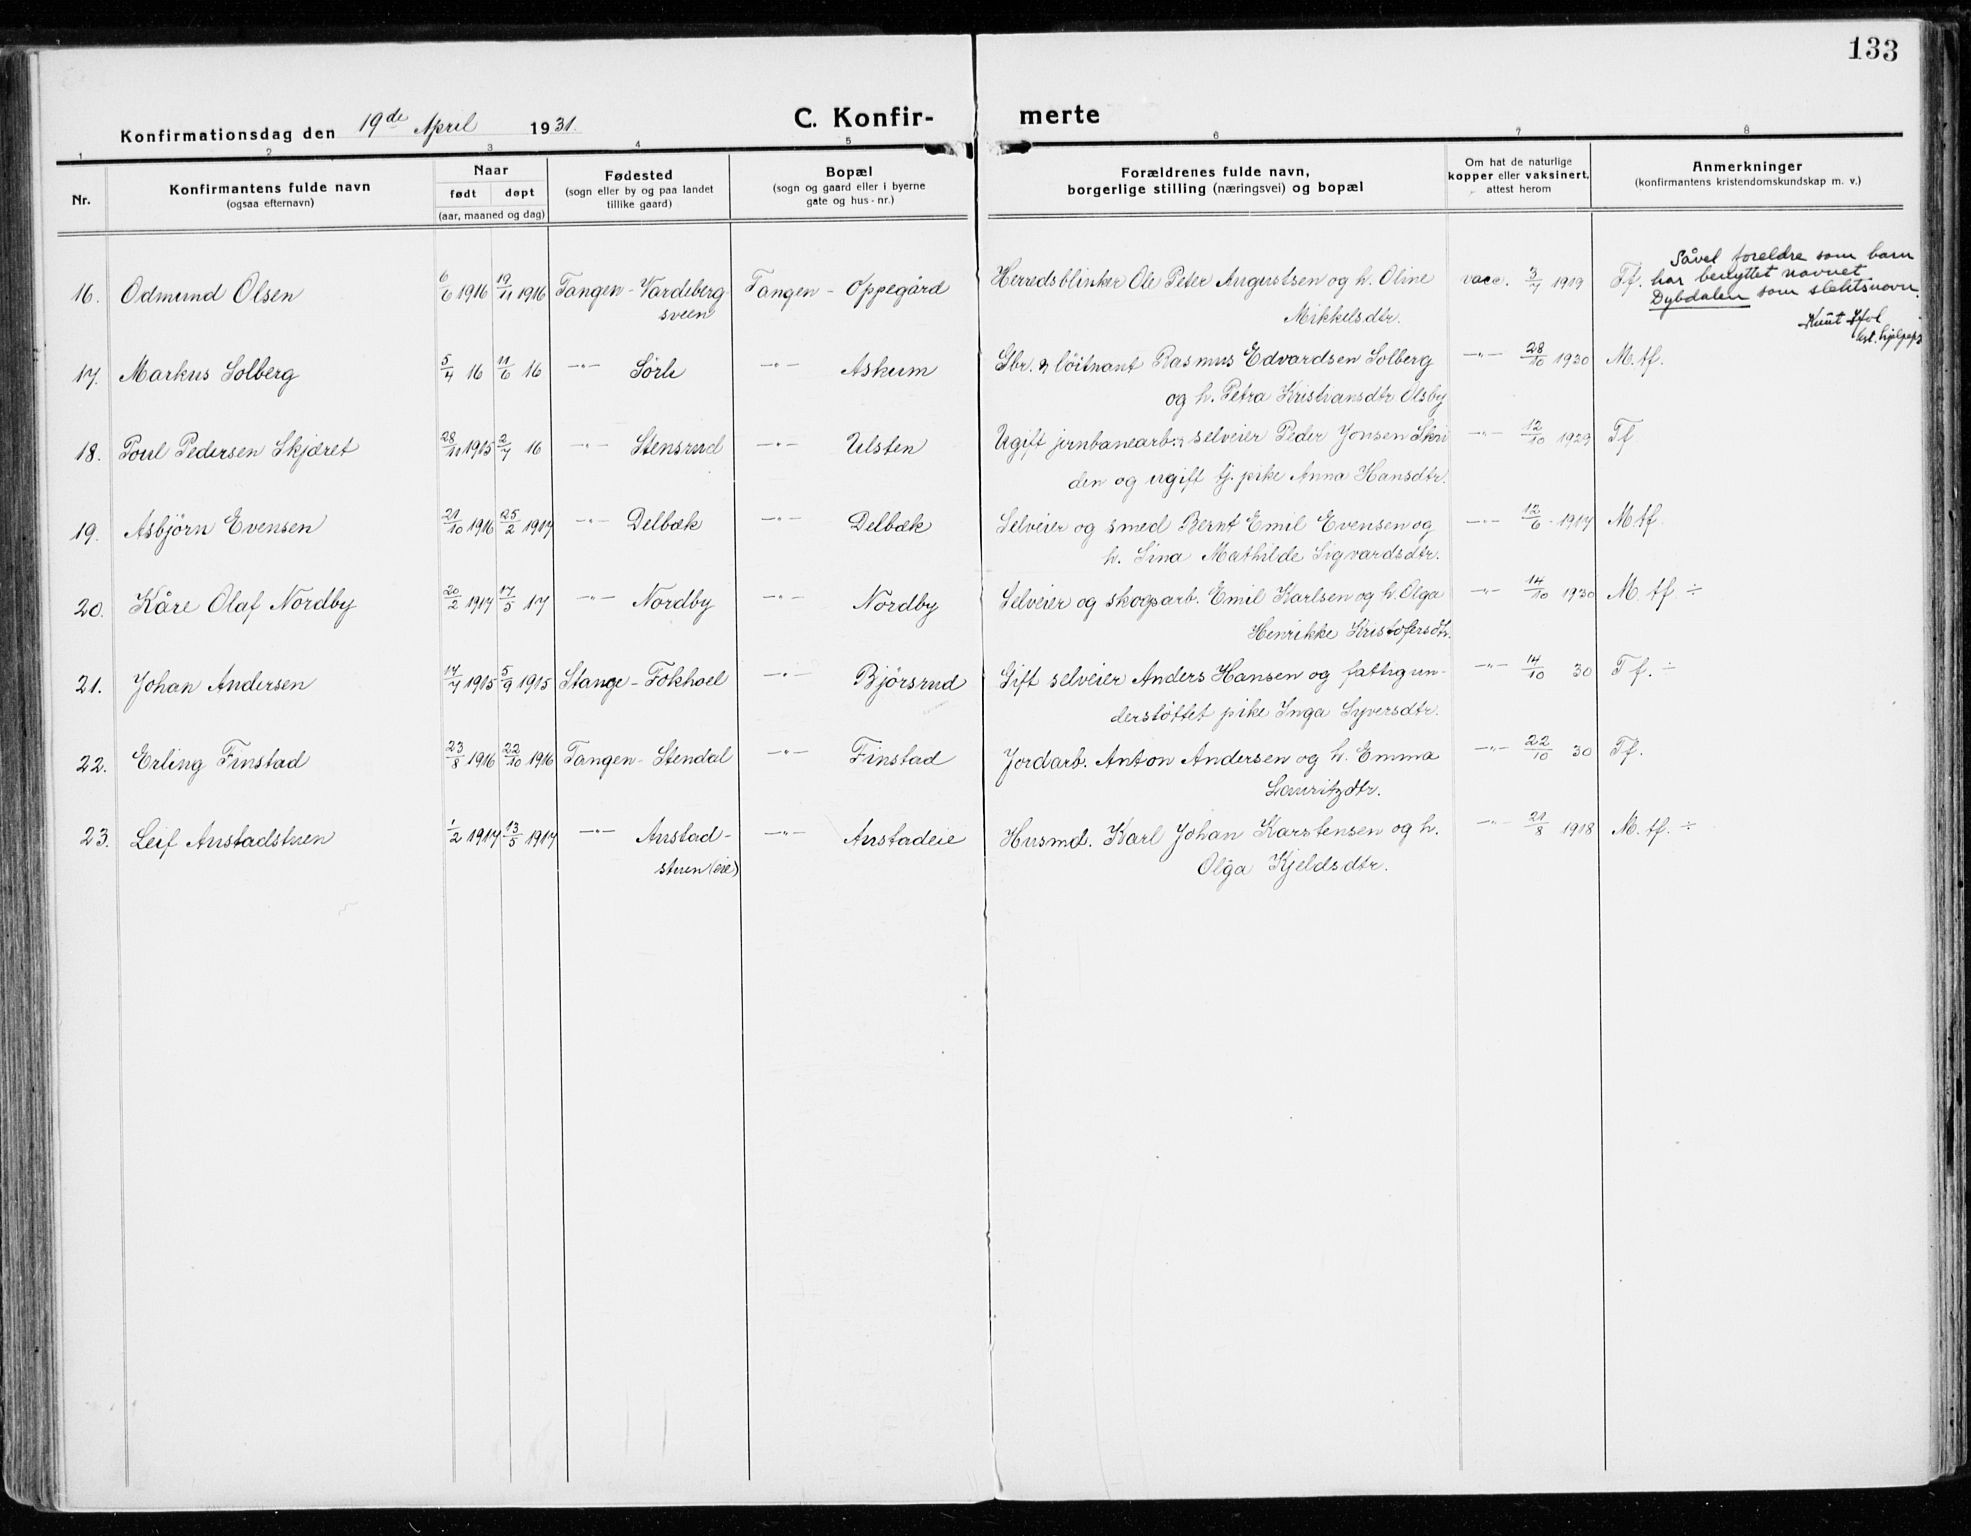 133
Konfirmationsdag den 19de April 1931.
C. Konfir- merte
1 2 3 4 5 6 7 8
Nr.
Konfirmantens fulde navn
(ogsaa efternavn)
Naar
født døpt
(aar, maaned og dag)
Fødested
(sogn eller by og paa landet
tillike gaard)
Bopæl
(sogn og gaard eller i byerne
gate og hus-nr.)
Forældrenes fulde navn,
borgerlige stilling (næringsvei) og bopæl
Om hat de naturlige
kopper eller vaksinert.
attest herom
Anmerkninger
(konfirmantens kristendomskundskap m. v.)
16. Odmund Olsen 6/6 1916 19/11 1916 Tangen - Vardeberg Tangen - Oppegård Herredsblinker Ole Peter Augustsen og h. Oline vacc. 3/7 1919 Tf.
sveen Mikkelsdtr.
Såvel foreldre som barn
har benyttet navnet
Dybdalen som slektsnavn.
Knut
17. Markus Solberg 5/4 16 11/6 16 -"- Sörli -"- Askum Gbr. & löitnant Rasmus Edvardsen Solberg -"- 28/10 1930 M. tf.
og h. Petra Kristiansdtr Olsby
18. Poul Pedersen Skjæret 28/11 1915 2/7 16 -"- Stensrud -"- Ulsten Ugift jernbanearb. & selveier Peder Jonsen Skri -"- 12/10 1929 Tf
den og ugift tj. pike Anna Hansdtr.
19. Asbjörn Evensen 21/10 1916 25/2 1917 -"- Delbæk -"- Delbæk Selveier og smed Bernt Emil Evensen og -"- 12/6 1917 M tf.
h. Lina Mathilde Sigvardsdtr.
20. Kåre Olaf Nordby 20/2 1917 17/5 17 -"- Nordby -"- Nordby Selveier og skogsarb. Emil Karlsen og h. Olga -"- 14/10 1930 M. tf. ÷
Henrikke Kristofersdtr.
21. Johan Andersen 17/7 1915 5/9 1915 Stange - Fokhoel -"- Bjørsrud Gift selveier Anders Hansen og fattigun- -"- 14/10 30 Tf. ÷
derstöttet pike Inga Syversdtr.
22. Erling Finstad 23/8 1916 22/10 1916 Tangen - Stendal -"- Finstad Jordarb. Anton Andersen og h. Emma -"- 22/10 30 Tf.
Lauritzdtr.
23. Leif Anstadstuen 1/2 1917 13/5 1917 -"- Anstad- -"- Anstadeie Husmd. Karl Johan Karstensen og h. -"- 21/8 1918 M. tf. ÷
stuen (eie) Olga Kjeldsdtr.